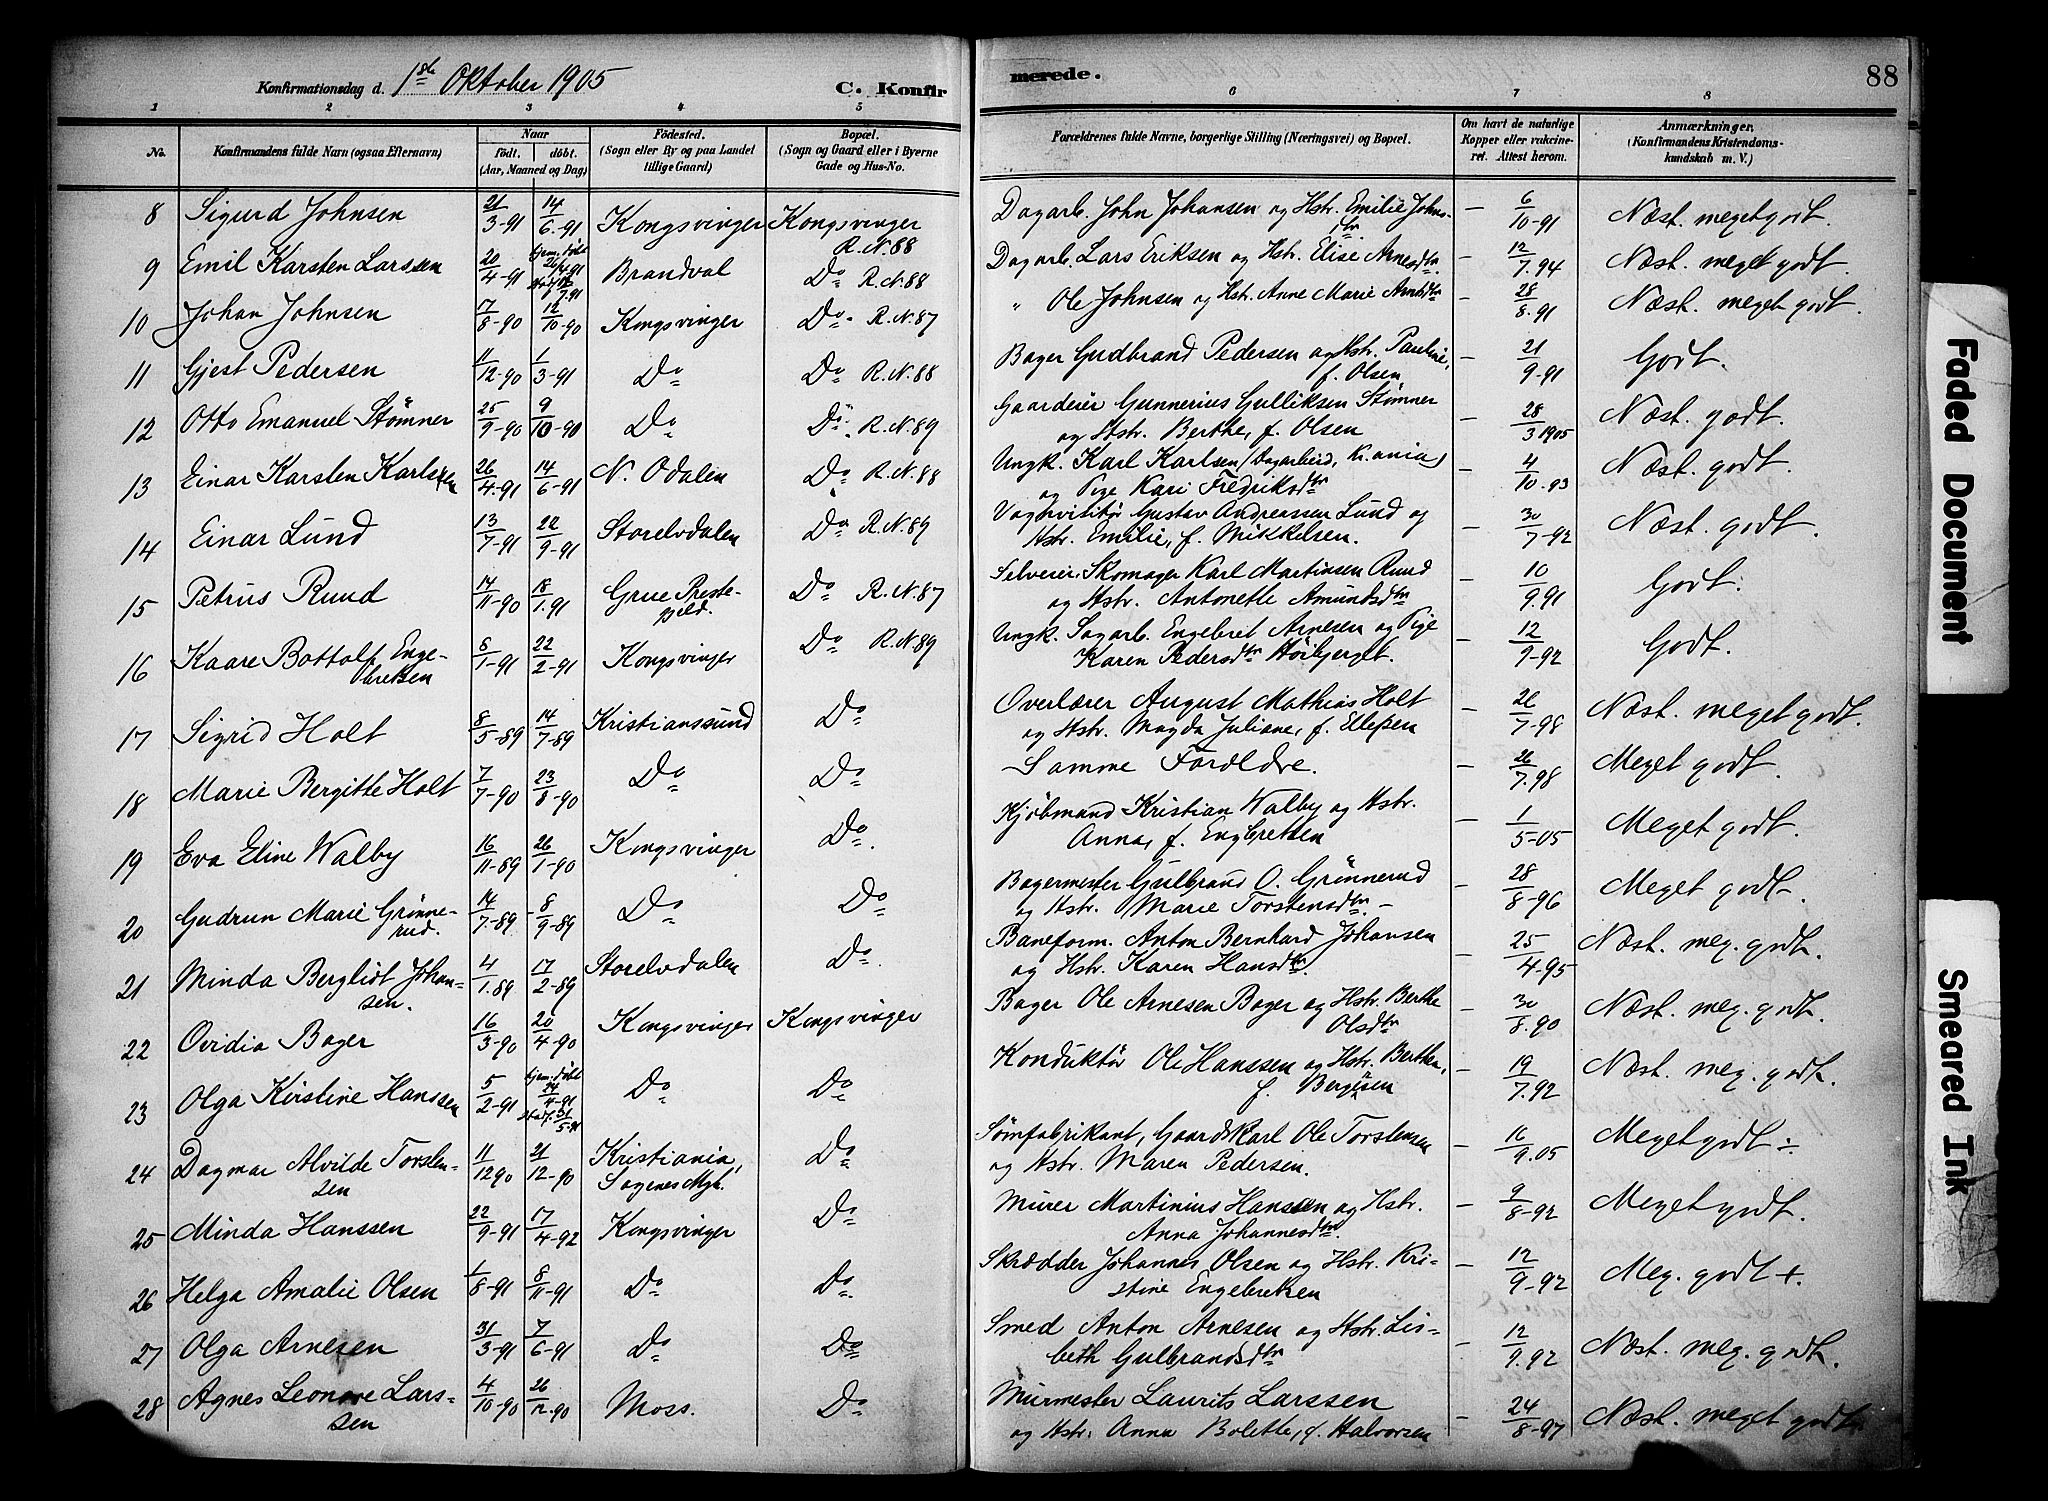 Konfirmationsdag d. 1ste Oktober 1905
C. Konfirmerede.
88
1 2 3 4 5 6 7 8
No.
Konfirmandens fulde Navn (ogsaa Efternavn)
Naar
født. døbt.
(Aar, Maaned og Dag)
Fødested.
(Sogn eller By og paa Landet
tillige Gaard)
Bopæl.
(Sogn og Gaard eller i Byerne
Gade og Hus-No.
Forældrenes fulde Navne, borgerlige Stilling (Næringsvei) og Bopæl.
Om havt de naturlige
Kopper eller vakcine-
ret. Attest herom.
Anmærkninger,
(Konfirmandens Kristendoms-
kundskab m. V.)
8 Sigurd Johnsen 21/3-91 14/6-91 Kongsvinger Kongsvinger R.N.88 Dagarb. John Johansen og Hstr. Emilie Johnsdtr. - 6/10-91 Næst. meget godt.
9 Emil Karsten Larssen 20/4-91 hjem. døbt 26/4 91 Brandval Do R.N.88 Dagarb. Lars Eriksen og Hstr. Elise Arnesdtr. - 12/7.94 Næst. meget godt.
10 Johan Johnsen 7/8-90 12/10-90 Kongsvinger Do. R.N.87 " Ole Johnsen og Hstr. Anne Marie Arntsdtr - 28/8.91 Næst. meget godt.
11 Gjest Pedersen 11/12-90 1/3-91 Do Do R.N.88 Bager Gudbrand Pedersen og Hstr. Pauline,
f. Olsen - 21/9-91 Godt.
12 Otto Emanuel Stømner 25/9-90 9/10-90 Do Do. R.N.89 Gaardeier Gunnerius Gulliksen Stømner
og Hstr. Berthe, f. Olsen - 28/3 1905 Næst. godt.
13 Einar Karsten Karlsen 26/4.91 14/6-91 N. Odalen Do R.N.88 Ungk. Karl Karlsen (Dagarbeid, Kr.ania)
og Pige Kari Fredriksdtr - 4/10.93 Næst. godt.
14 Einar Lund 13/7-91 22/9-91 Storelvdalen Do R.N.89 Vognvisitør Gustav Andreassen Lund og
Hstr. Emilie, f. Mikkelsen. - 30/7-92 Næst. godt.
15 Petrus Ruud 14/11-90 18/1.91 Grue Preste-
gjeld. Do R.N.87 Selveier. Skomager Karl Martinsen Ruud
og Hstr. Antonette Amundsdtr - 10/9.91 Godt.
16 Kaare Bottolf Enge-
bretsen 8/1-91 22/2-91 Kongsvinger Do R.N.89 Ungk. Sagarb. Engebret Arnesen og Pige
Karen Pedersdtr Høibjerget. - 12/9-92 Godt.
17 Sigrid Holt 8/5-89 14/7-89 Kristianssund Do Overlærer August Mathias Holt
og Hstr. Magda Juliane, f. Ellefsen - 26/7-98 Næst. meget godt.
18 Marie Bergitte Holt 7/7-90 23/8-90 Do Do Samme Forældre. - 26/7.98 Meget godt.
19 Eva Eline Walby 16/11-89 26/1-90 Kongsvinger Do. Kjøbmand Kristian Walby og Hstr.
Anna, f. Engbretsen - 1/5-05 Meget godt.
20 Gudrun Marie Grønne-
rud. 14/7-89 8/9-89 Do Do Bagermester Gulbrand O. Grønnerud
og Hstr. Marie Torstensdtr. - 28/8-96 Meget godt.
21 Minda Bergliot Johan-
sen. 4/1.89 17/2-89 Storelvdalen Do. Baneform. Anton Bernhard Johansen
og Hstr. Karen Hansdtr. - 25/4-95 Næst. meg. godt.
22 Ovidia Bager 16/3-90 20/4-90 Kongsvinger Kongsvinger Bager Ole Arnesen Bager og Hstr. Berthe
Olsdtr - 30/8.90 Næst. meg. godt.
23 Olga Kirstine Hanssen 5/2-91 hjem. døbt Stadf. 31/5-91 Do Do Konduktør Ole Hanssen og Hstr. Berthea,
f. Bergersen - 19/7.92 Næst. meg. godt.
24 Dagmar Alvilde Torsten-
sen 11/12 90 21/12-90 Kristiania,
Sagenes Mgh. Do Sømfabrikant, Gaardskarl Ole Torstensen
og Hstr. Maren Pedersen. - 16/9.05 Meget godt ÷
25 Minda Hanssen 22/9-91 17/4-92 Kongsvinger Do Murer Martinius Hanssen og Hstr.
Anna Johannesdtr. - 9/8-92 Meget godt.
26 Helga Amalie Olsen 1/8-91 8/11-91 Do Do. Skrædder Johannes Olsen og Hstr. Kri-
stine Engebretsen - 12/9-92 Meg. godt +.
27 Olga Arnesen 31/3-91 7/6-91 Do Do Smed Anton Arnesen og Hstr. Lis-
beth Gulbrandsdtr - 12/9.92 Næst. meg. godt.
28 Agnes Leonore Lars-
sen 4/10-90 26/12.90 Moss. Do Murmester Laurits Larssen
og Hstr. Anna Bolette, f. Halvorsen - 24/8-97 Næst. meget godt
Faded Document
Smeared Ink